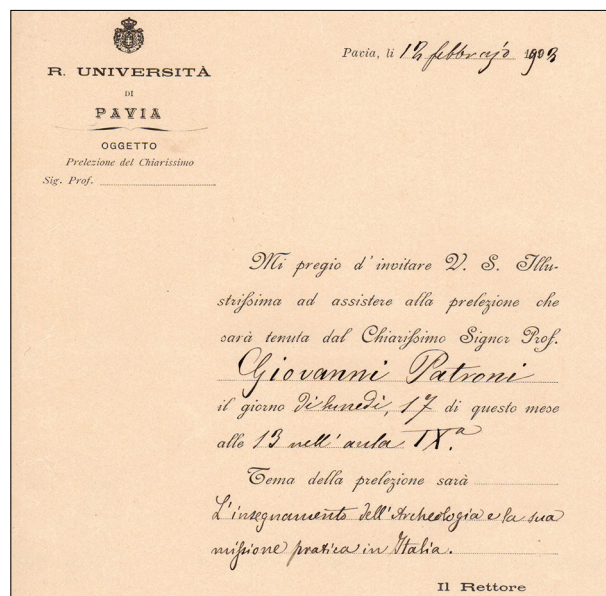 Pavia, li 13 febbrajo 1902
R. UNIVERSITÀ
DI
PAVIA
OGGETTO
Prelezione del Chiarissimo
Sig. Prof.
Mi pregio d'invitare V. S. Illu-
strissima ad assistere alla prelezione che
sarà tenuta dal Chiarissimo Signor Prof.
Giovanni Patroni
il giorno di lunedì, 17 di questo mese
alle 13 nell'aula IXª.
Tema della prelezione sarà
L'insegnamento dell'Archeologia e la sua
missione pratica in Italia.
Il Rettore